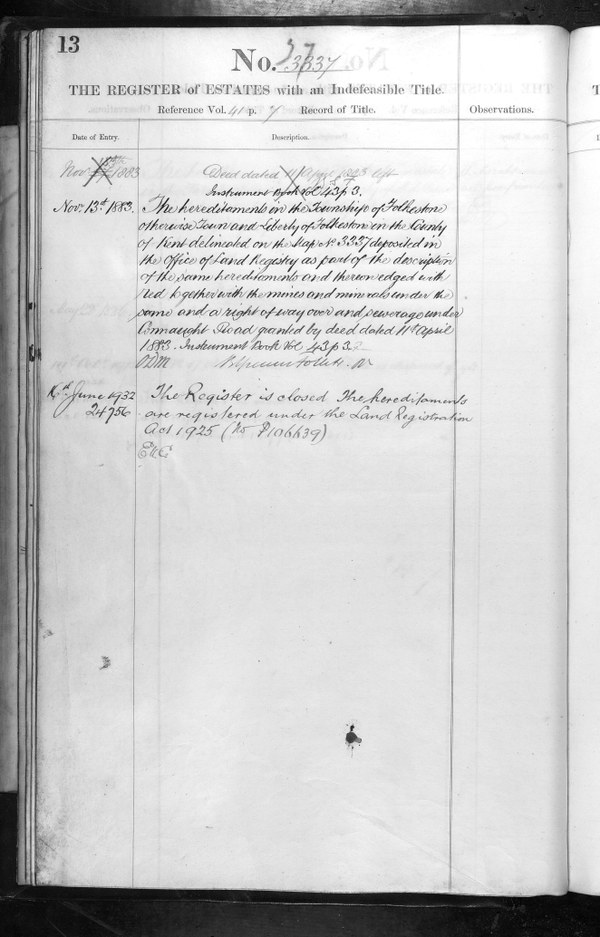 13
No. 3337
THE REGISTER of ESTATES with an Indefeasible Title.
Reference Vol. 41 p. 7 Record of Title.
Observations.
Date of Entry.
Description.
Nov. 1883
Deed dated 11 April
Instrument Book Vol 43 p 3.
Nov. 13th 1883.
The hereditaments in the Township of Folkestone
otherwise Town and Liberty of Folkestone in the County
of Kent delineated on the Map No 3337 deposited in
the Office of Land Registry as part of the description
of the same hereditaments and thereon edged with
red together with the mines and minerals under the
same and a right of way over and sewerage under
Connaught Road granted by deed dated 11th April
1883. Instrument Book Vol 43 p 3.
June 1932
24756
The Register is closed The hereditaments
are registered under the Land Registration
Act 1925 (No P106639)